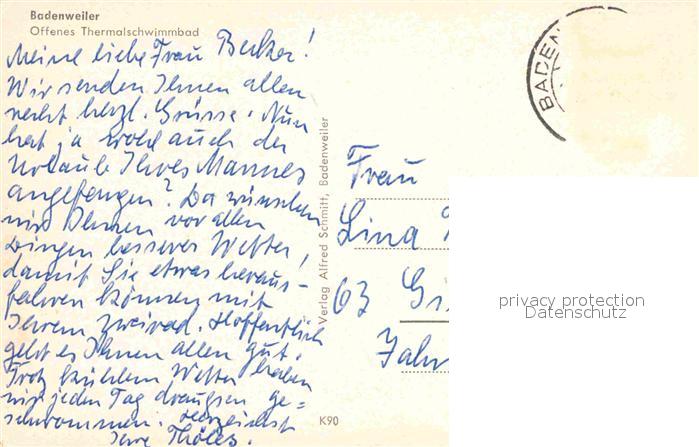 Badenweiler
Offenes Thermalschwimmbad
Meine liebe Frau Becker!
Wir senden Ihnen allen
recht herzl. Grüsse. Nun
hat ja wohl auch der
Urlaub Ihres Mannes
angefangen? Da wünschen
wir Ihnen vor allen
Dingen besseres Wetter,
damit Sie etwas heraus-
fahren können mit
Ihrem Zweirad. Hoffentlich
geht es Ihnen allen gut.
Trotz kühlem Wetter haben
wir jeden Tag draussen ge=
schwommen. Herzlichst
Ihre
Verlag Alfred Schmitt, Badenweiler
K90
BADEN
Frau
Lina
63 Gi
Jahn
privacy protection
Datenschutz